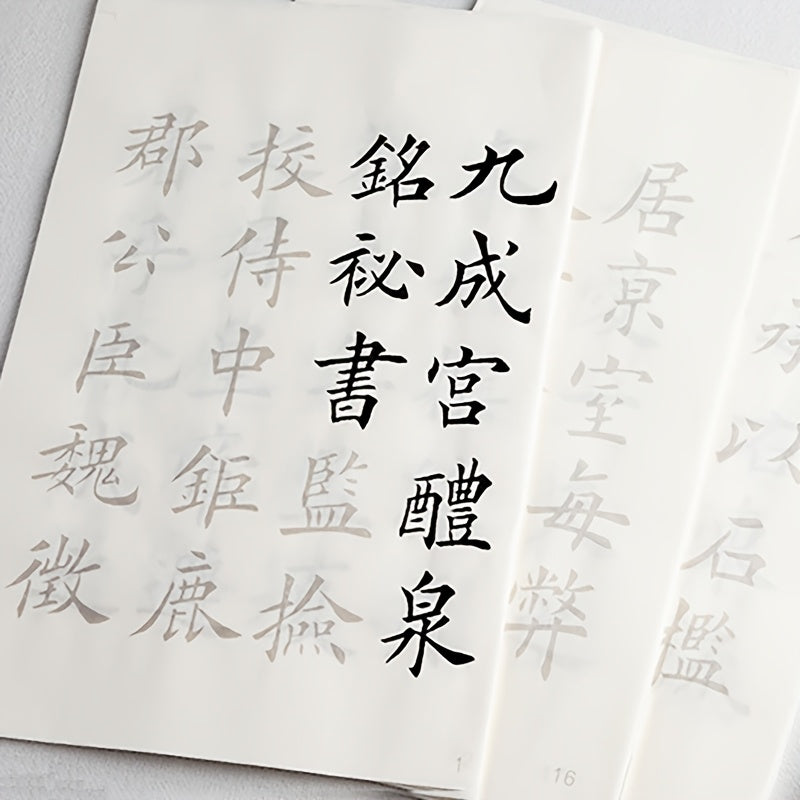 九成宮醴泉
銘祕書監撿
挍侍中鉅鹿
郡公臣魏徵
1
居亰室每弊
16
承以石檻